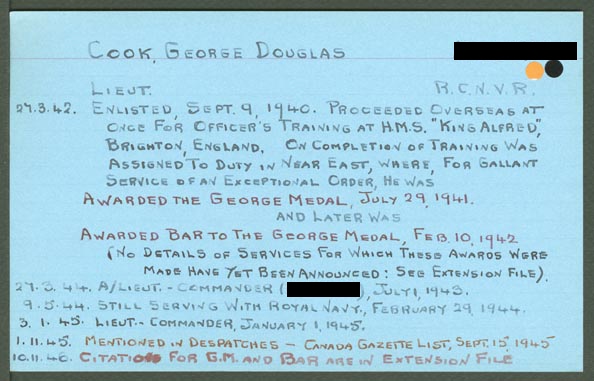 COOK, GEORGE DOUGLAS
LIEUT. R.C.N.V.R.
27.3.42. ENLISTED, SEPT. 9, 1940. PROCEEDED OVERSEAS AT
ONCE FOR OFFICER'S TRAINING AT H.M.S. "KING ALFRED",
BRIGHTON, ENGLAND. ON COMPLETION OF TRAINING WAS
ASSIGNED TO DUTY IN NEAR EAST, WHERE, FOR GALLANT
SERVICE OF AN EXCEPTIONAL ORDER, HE WAS
AWARDED THE GEORGE MEDAL, JULY 29, 1941.
AND LATER WAS
AWARDED BAR TO THE GEORGE MEDAL, FEB. 10, 1942
(NO DETAILS OF SERVICES FOR WHICH THESE AWARDS WERE
MADE HAVE YET BEEN ANNOUNCED: SEE EXTENSION FILE).
27.3.44. A/LIEUT.-COMMANDER ( ), JULY 1, 1943.
9.5.44. STILL SERVING WITH ROYAL NAVY, FEBRUARY 29, 1944.
3.1.45. LIEUT.-COMMANDER, JANUARY 1, 1945.
1.11.45. MENTIONED IN DESPATCHES - CANADA GAZETTE LIST, SEPT. 15 1945
10.11.46. CITATIONS FOR G.M. AND BAR ARE IN EXTENSION FILE